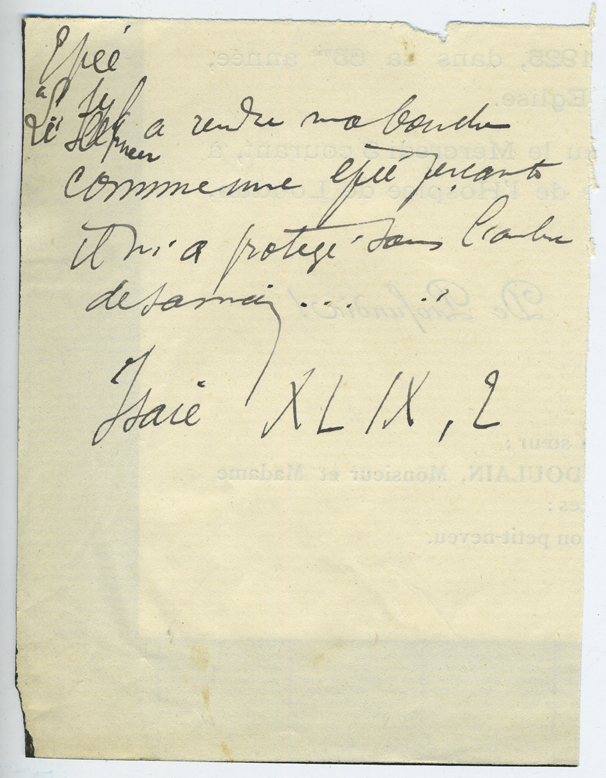 Epée
a rendu ma bouche
comme une epée perçante
il m'a protégé sous l'ombre
de sa main.....
Isaïe XLIX, 2
1928, dans sa 68me année,
Eglise.
le Mercredi courant, à
de l'Hospice de
De Profundis!
sœur ;
DOULAIN, Monsieur et Madame
petit-neveu.